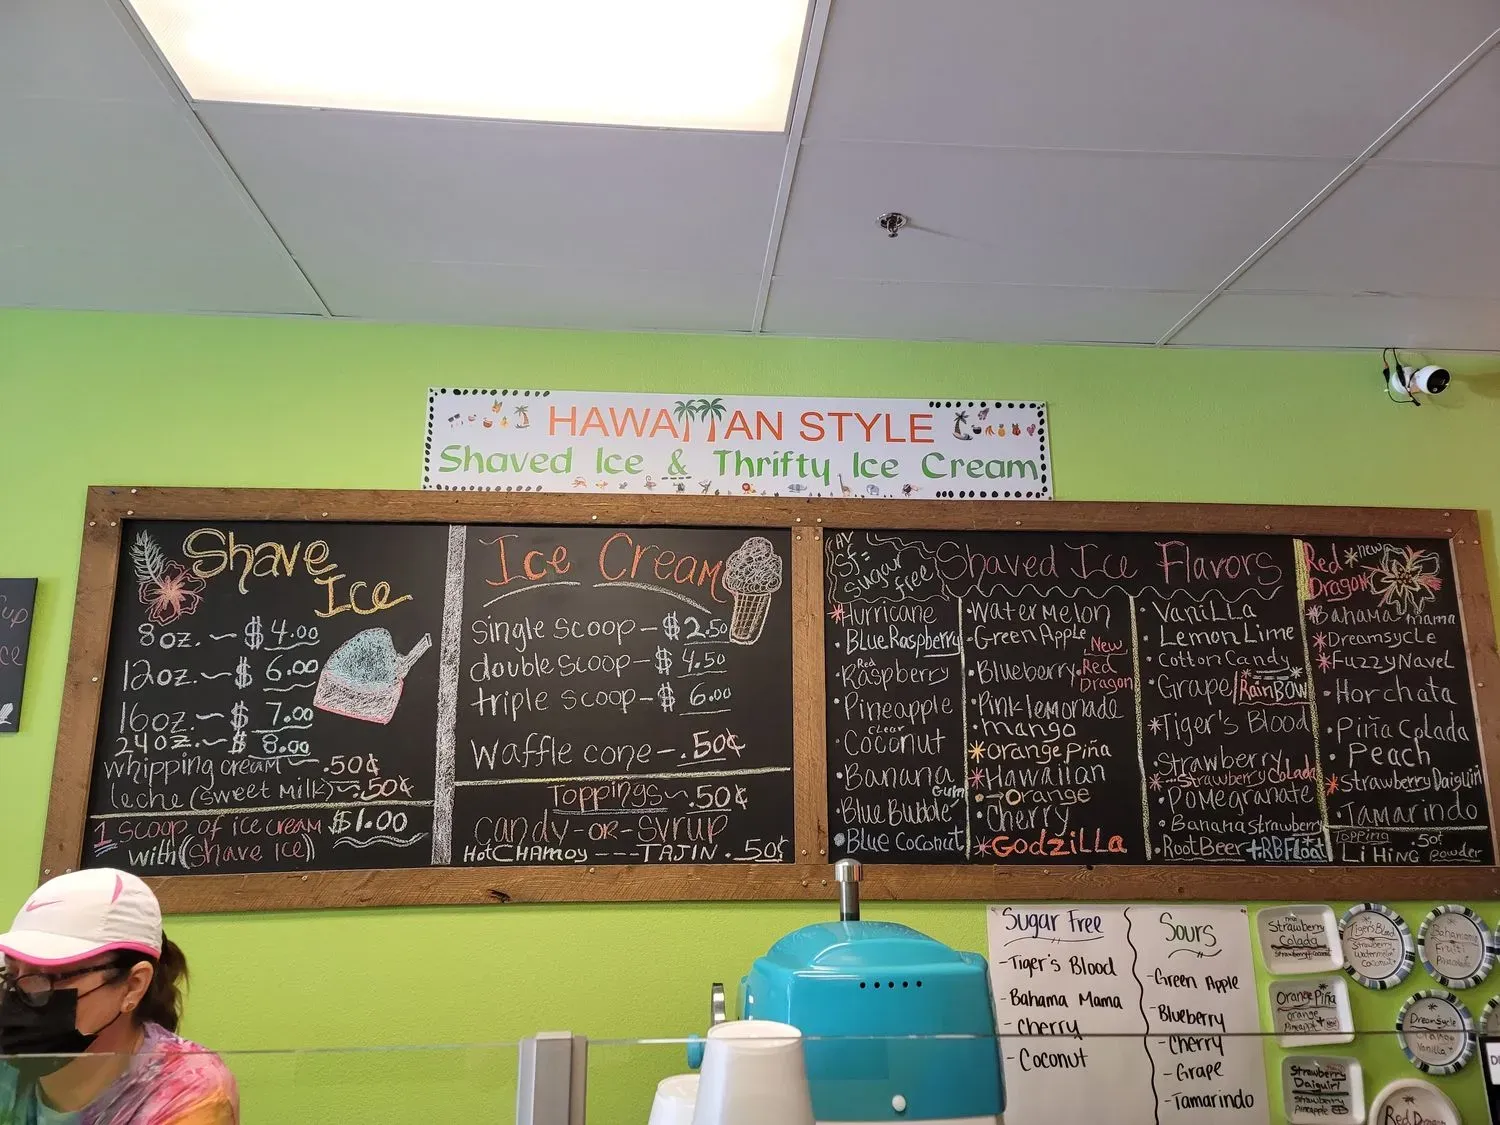 HAWAIIAN STYLE
Shaved Ice & Thrifty Ice Cream
Shave
Ice
8oz. ~ $4.00
12oz. ~ $6.00
16oz. ~ $7.00
24oz. ~ $8.00
whipping cream .50¢
leche (sweet milk) ~ .50¢
1 scoop of ice cream $1.00
with (shave ice)
Ice Cream
single scoop - $2.50
double scoop - $4.50
triple scoop - $6.00
waffle cone - .50¢
Toppings ~ .50¢
candy-or-syrup
Hot CHAMOY --- TAJIN .50¢
SF=
Sugar
free
Shaved Ice Flavors
*Hurricane
•Blue Raspberry
•Red Raspberry
•Pineapple
clear
•Coconut
•Banana
•Blue Bubble Gum
•Blue Coconut
•Watermelon
•Green Apple
•Blueberry
New
•Red
Dragon
•Pink lemonade
•mango
*Orange Piña
*Hawaiian
Orange
•Cherry
*Godzilla
•Vanilla
•Lemon Lime
•Cotton Candy
•Grape
*RainBOW*
*Tiger's Blood
•Strawberry
*Strawberry Colada
•Pomegranate
•Banana Strawberry
•Root Beer + RB Float
Red
Dragon
*new
•Bahama mama
*Dreamsycle
*Fuzzy Navel
•Horchata
•Piña Colada
•Peach
*Strawberry Daiguiri
•Tamarindo
Topping .50¢
Li Hing Powder
Sugar Free
-Tiger's Blood
-Bahama Mama
-Cherry
-Coconut
Sours
-Green Apple
-Blueberry
-Cherry
-Grape
-Tamarindo
Strawberry
Colada
Tiger's Blood
Strawberry
Watermelon
Coconut
Orange Piña
orange
Pineapple
Dreamsycle
Orange
Vanilla
Strawberry
Daiguiri
Strawberry
Pineapple
Red Dragon